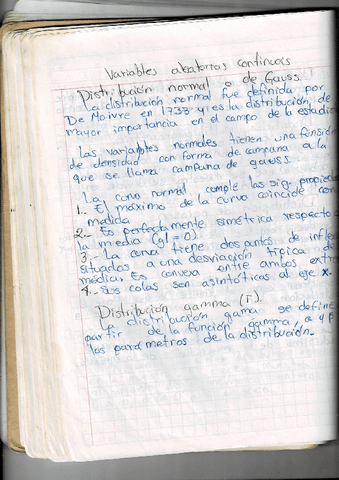 Variables aleatorias continuas
Distribución normal o de Gauss.
La distribución normal fue definida por
De Moivre en 1733 y es la distribución de
mayor importancia en el campo de la estadís
Las variables normales tienen una funsión
de densidad con forma de campana a la
que se llama campana de gauss.
La curva normal cumple las sig. propieda
1.- El máximo de la curva coincide con
medida
2.- Es perfectamente simétrica respecto a
la media (g1 = 0).
3.- La curva tiene dos puntos de infle
situados a una desviación típica de
media. Es convexa entre ambos extr
4.- Sus colas son asintóticas al eje x.
Distribución gamma (Γ).
La distribución gama se define
partir de la función gamma, a y p
los parámetros de la distribución.